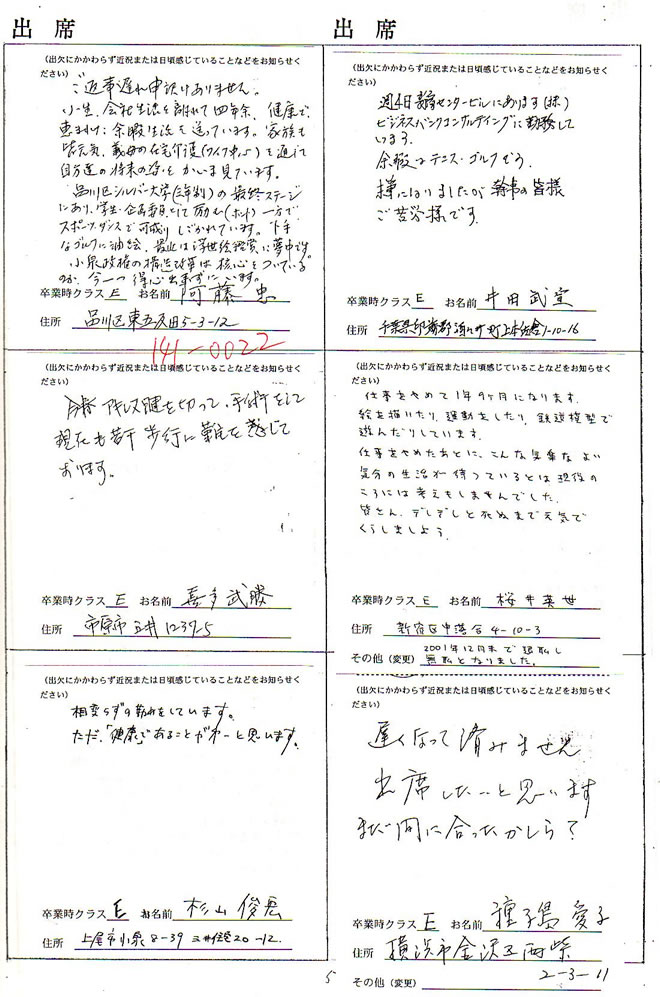 出席
（出欠にかかわらず近況または日頃感じていることなどをお知らせく
ださい）
ご返事遅れ申訳ありません。
小生、会社生活を離れて四年余、健康で
恵まれ、余暇生活を送っています。家族も
皆元気、義母の在宅介護（ワイフ中心）を通じて
自分達の将来の姿をかいま見ています。
品川区シルバー大学（2年制）の最終ステージ
にあり、学生・企画委員として励む（ホント）一方で
スポーツダンスで可成りしごかれています。下手
なゴルフに油絵、最近は浮世絵鑑賞に夢中です。
小泉政権の構造改革は核心をついている
のか、今一つ得心出来ずにいます。
卒業時クラス E お名前 阿藤 忠
住所 品川区東五反田5-3-12
141-0022
（出欠にかかわらず近況または日頃感じていることなどをお知らせく
ださい）
アキレス腱を切って、手術をして
現在も若干歩行に難を感じて
おります。
卒業時クラス E お名前 喜多武勝
住所 市原市五井1239-5
（出欠にかかわらず近況または日頃感じていることなどをお知らせく
ださい）
相変らずの勤めをしています。
ただ、「健康」であることが第一と思います。
卒業時クラス E お名前 杉山俊
住所 上尾市小泉8-39 20-12
出席
（出欠にかかわらず近況または日頃感じていることなどをお知らせく
ださい）
週4日 センタービルにあります（株）
ビジネスバンクコンサルティングに勤務して
います。
余暇はテニス・ゴルフどう。
様になりましたが幹事の皆様
ご苦労様です。
卒業時クラス E お名前 井田武
住所 千葉県印旛郡酒々井町上本佐倉1-10-16
（出欠にかかわらず近況または日頃感じていることなどをお知らせく
ださい）
仕事をやめて1年9ヶ月になります。
絵を描いたり、運動をしたり、鉄道模型で
遊んだりしています。
仕事をやめたあとに、こんな気楽なよい
気分の生活が待っているとは現役の
ころには考えもしませんでした。
皆さん、デレデレと死ぬまで元気で
くらしましょう。
卒業時クラス E お名前 桜井英世
住所 新宿区中落合4-10-3
その他（変更） 2001年12月末で退職し
無職となりました。
（出欠にかかわらず近況または日頃感じていることなどをお知らせく
ださい）
遅くなって済みません
出席したいと思います
まだ間に合ったかしら？
卒業時クラス E お名前 種子島愛子
住所 横浜市金沢区西柴
2-3-11
その他（変更）
5